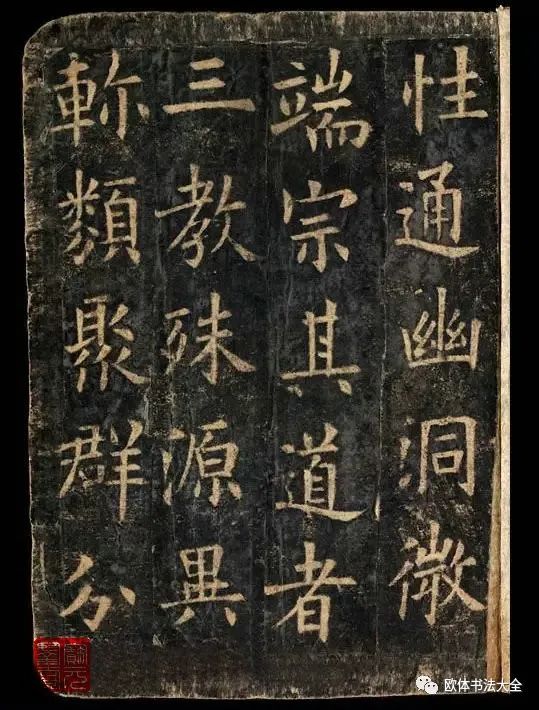 性通幽洞微
端宗其道者
三教殊源異
軫類聚群分
欧体书法大全